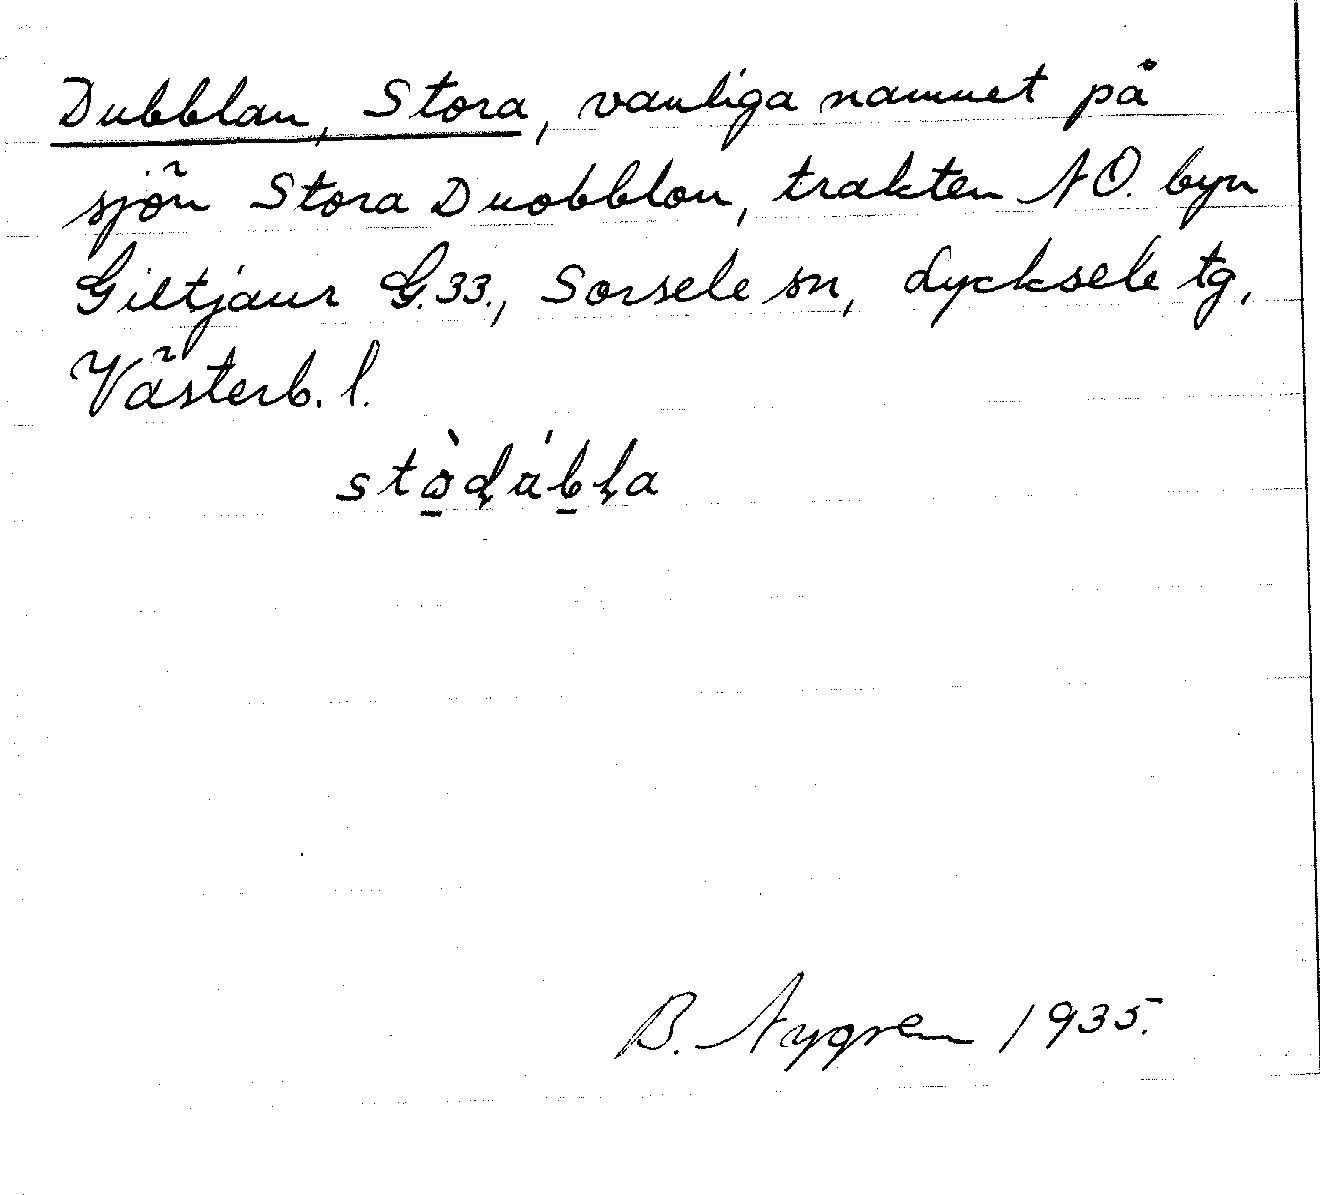 Dubblan, Stora, vanliga namnet på
sjön Stora Duobblon, trakten NO. byn
Giltjaur G.33., Sorsele sn, Lycksele tg,
Västerb. l.
B. Nygren 1935.